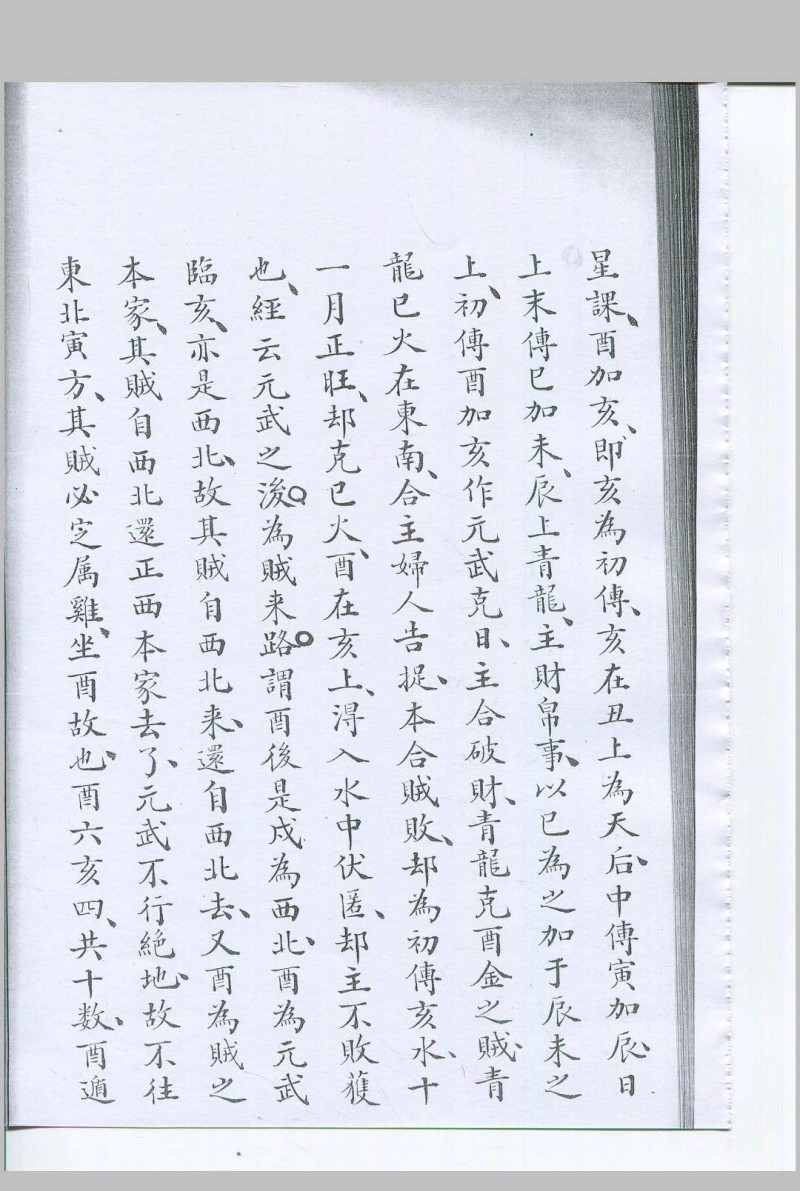 星課、酉加亥、即亥為初傳、亥在丑上為天后、中傳寅加辰、日
上末傳巳加未、辰上青龍、主財帛事、以巳為之加于辰未之
上、初傳酉加亥作元武克日、主合破財、青龍克酉金之賊、青
龍巳火在東南、合主婦人告捉、本合賊敗、却為初傳亥水、十
一月正旺、却克巳火、酉在亥上、淂入水中伏匿、却主不敗獲
也、經云元武之後為賊来路謂酉後是戌為西北、酉為元武
臨亥、亦是西北、故其賊自西北来、還自西北去、又酉為賊之
本家、其賊自西北還正西本家去了、元武不行絶地、故不往
東北寅方、其賊必定属雞、坐酉故也、酉六亥四、共十数、酉遁